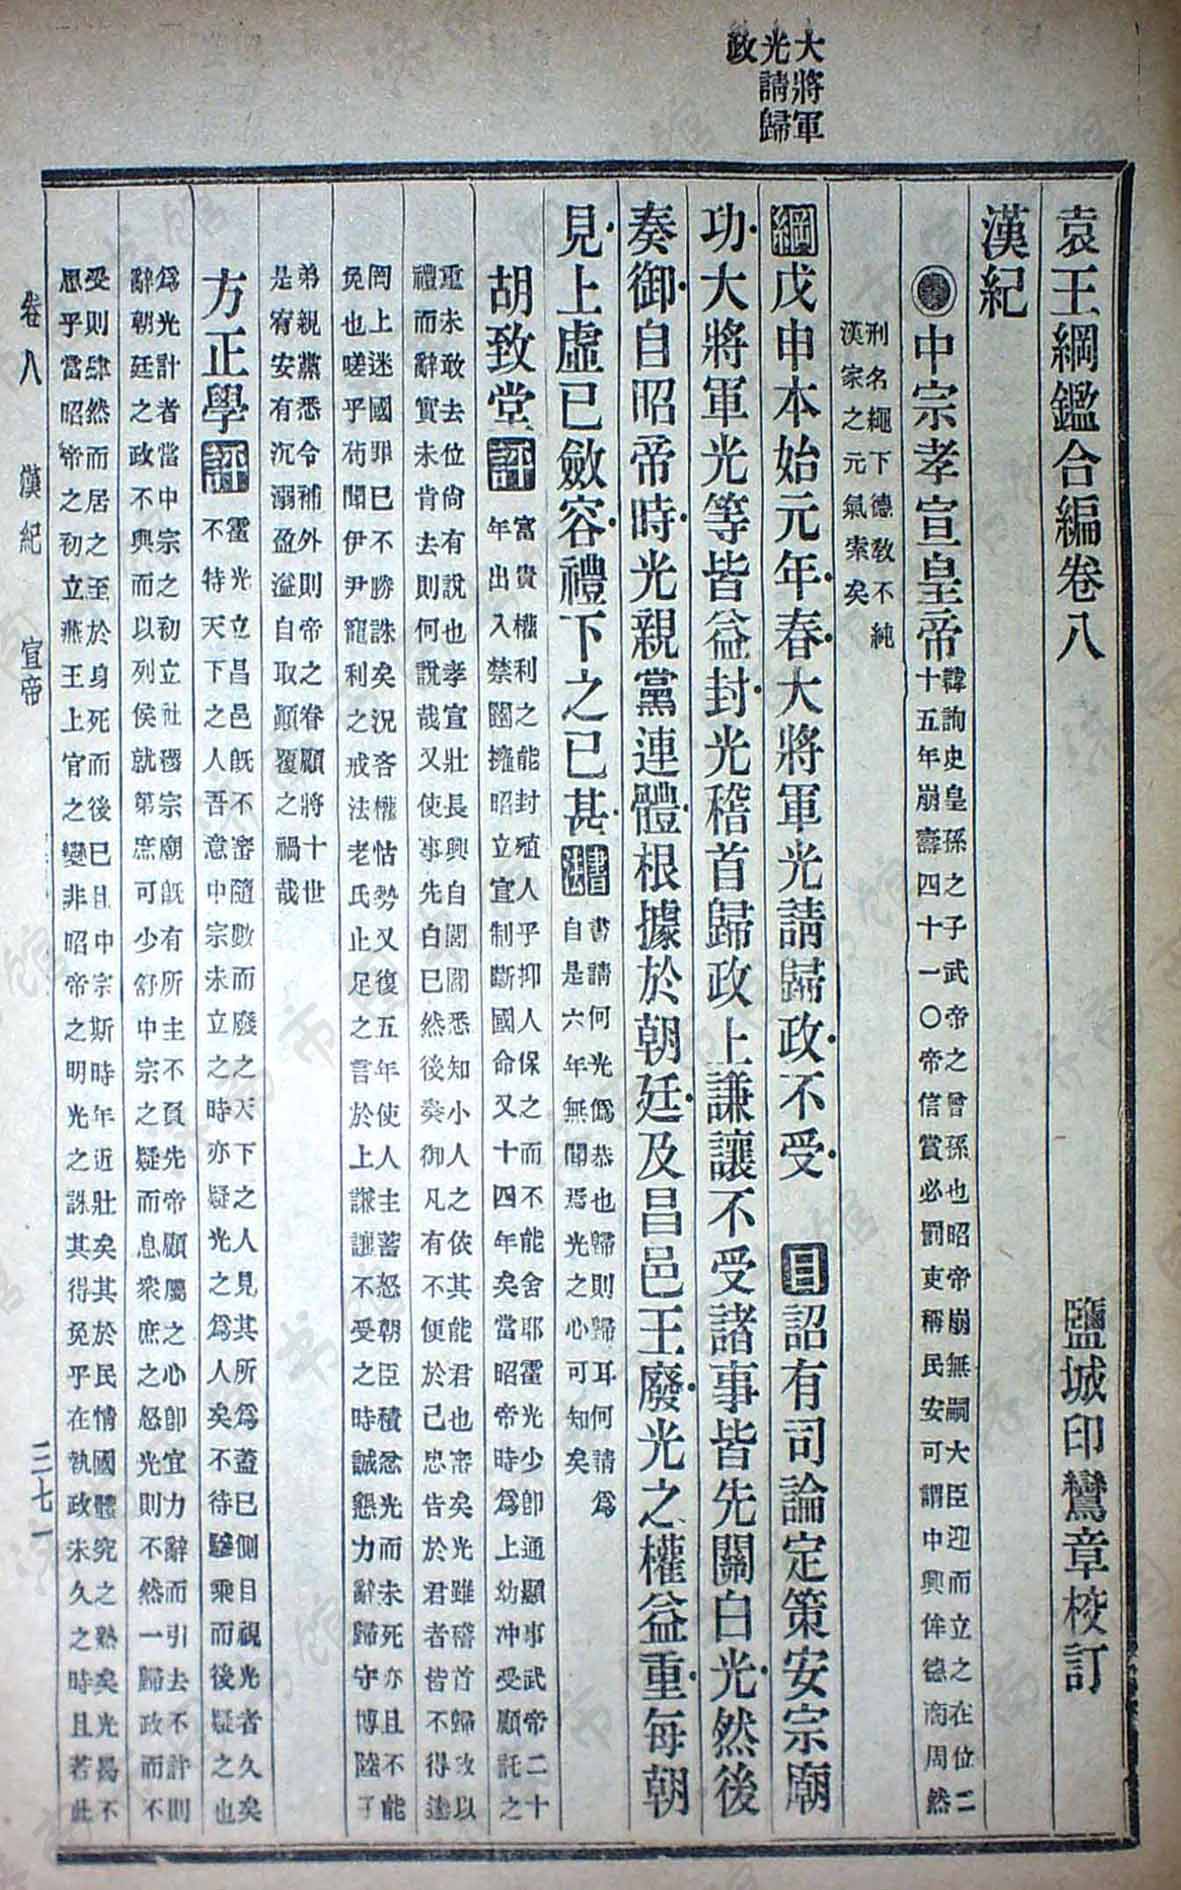 大將軍
光請歸
政
袁王綱鑑合編卷八　鹽城印鸞章校訂
漢紀
中宗孝宣皇帝
諱詢史皇孫之子武帝之曾孫也昭帝崩無嗣大臣迎而立之在位二
十五年崩壽四十一〇帝信賞必罰吏稱民安可謂中興侔德商周然
刑名繩下德敎不純
漢家之元氣索矣
綱戊申本始元年春大將軍光請歸政不受　目詔有司論定策安宗廟
功大將軍光等皆益封光稽首歸政上謙讓不受諸事皆先關白光然後
奏御自昭帝時光親黨連體根據於朝廷及昌邑王廢光之權益重每朝
見上虛已斂容禮下之已甚書法
書請何光僞恭也歸則歸耳何請爲
自是六年無聞焉光之心可知矣
胡致堂評
富貴權利之能封殖人乎抑人保之而不能舍耶霍光少卽通顯事武帝二十
年出入禁闥擁昭立宣制斷國命又十四年矣當昭帝時爲上幼冲受顧託之
重未敢去位尚有說也孝宣壯長興自閭閻悉知小人之依其能君也審矣光雖稽首歸政以
禮而辭實未肯去則何說哉又使事先白已然後奏御凡有不便於己忠告於君者皆不得達
罔上迷國罪已不勝誅矣況吝權怙勢又復五年使人主蓄怒朝臣積忿光而未死亦且不能
免也嗟乎苟聞伊尹寵利之戒法老氏止足之言於上謙讓不受之時誠懇力辭歸守博陸子
弟親黨悉令補外則帝之眷顧將十世
是宥安有沉溺盈溢自取顚覆之禍哉
方正學評
霍光立昌邑旣不審隨數而廢之天下之人見其所爲蓋已側目視光者久矣
不特天下之人吾意中宗未立之時亦疑光之爲人矣不待驂乘而後疑之也
爲光計者當中宗之初立社稷宗廟旣有所主不負先帝顧屬之心卽宜力辭而引去不許則
辭朝廷之政不與而以列侯就第庶可少舒中宗之疑而息衆庶之怒光則不然一歸政而不
受則肆然而居之至於身死而後已且中宗斯時年近壯矣其於民情國體究之熟矣光曷不
思乎當昭帝之初立燕王上官之變非昭帝之明光之誅其得免乎在執政未久之時且若此
卷八　漢紀　宣帝　三七一